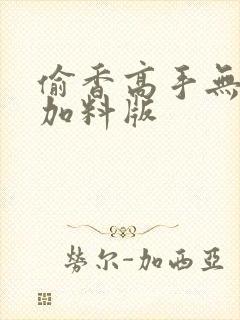 偷香高手無
加料版
勞尔-加西亞